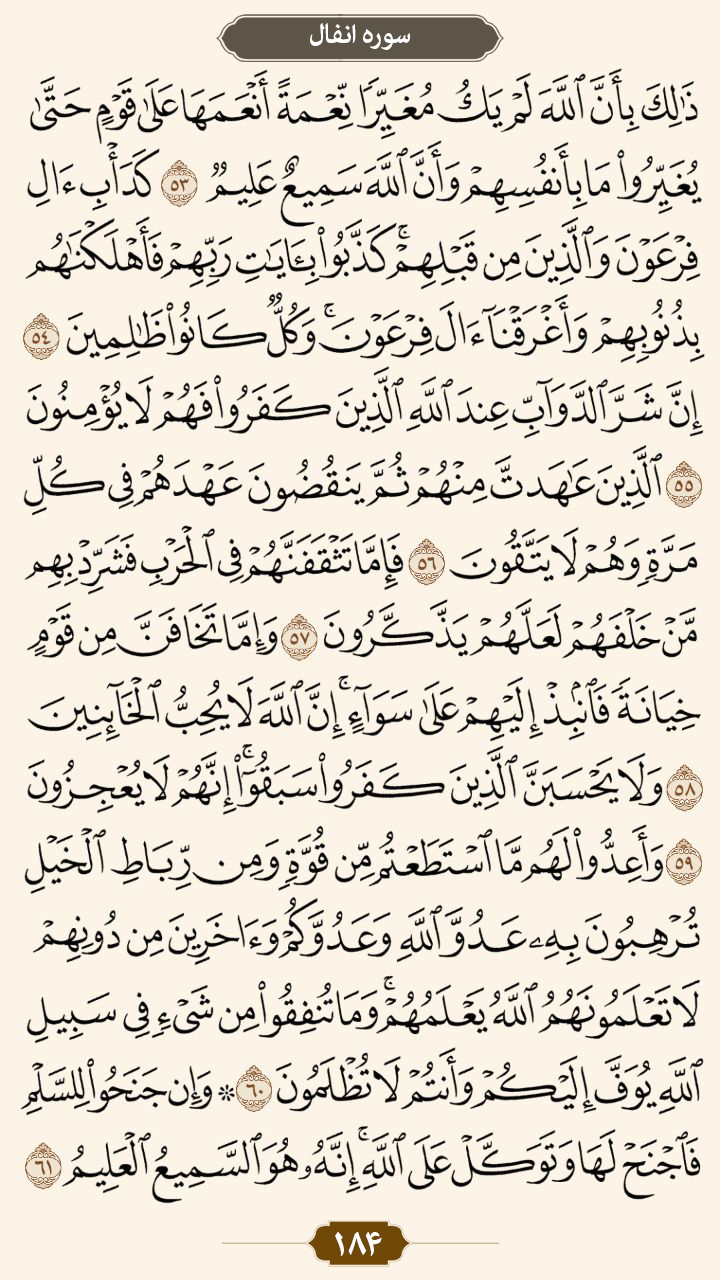 سوره انفال
ذَٰلِكَ بِأَنَّ ٱللَّهَ لَمْ يَكُ مُغَيِّرًا نِّعْمَةً أَنْعَمَهَا عَلَىٰ قَوْمٍ حَتَّىٰ
يُغَيِّرُوا۟ مَا بِأَنفُسِهِمْ وَأَنَّ ٱللَّهَ سَمِيعٌ عَلِيمٌ ٥٣ كَدَأْبِ ءَالِ
فِرْعَوْنَ وَٱلَّذِينَ مِن قَبْلِهِمْ ۚ كَذَّبُوا۟ بِـَٔايَـٰتِ رَبِّهِمْ فَأَهْلَكْنَـٰهُم
بِذُنُوبِهِمْ وَأَغْرَقْنَآ ءَالَ فِرْعَوْنَ ۚ وَكُلٌّ كَانُوا۟ ظَـٰلِمِينَ ٥٤
إِنَّ شَرَّ ٱلدَّوَآبِّ عِندَ ٱللَّهِ ٱلَّذِينَ كَفَرُوا۟ فَهُمْ لَا يُؤْمِنُونَ
٥٥ ٱلَّذِينَ عَـٰهَدتَّ مِنْهُمْ ثُمَّ يَنقُضُونَ عَهْدَهُمْ فِى كُلِّ
مَرَّةٍ وَهُمْ لَا يَتَّقُونَ ٥٦ فَإِمَّا تَثْقَفَنَّهُمْ فِى ٱلْحَرْبِ فَشَرِّدْ بِهِم
مَّنْ خَلْفَهُمْ لَعَلَّهُمْ يَذَّكَّرُونَ ٥٧ وَإِمَّا تَخَافَنَّ مِن قَوْمٍ
خِيَانَةً فَٱنۢبِذْ إِلَيْهِمْ عَلَىٰ سَوَآءٍ ۚ إِنَّ ٱللَّهَ لَا يُحِبُّ ٱلْخَآئِنِينَ
٥٨ وَلَا يَحْسَبَنَّ ٱلَّذِينَ كَفَرُوا۟ سَبَقُوٓا۟ ۚ إِنَّهُمْ لَا يُعْجِزُونَ
٥٩ وَأَعِدُّوا۟ لَهُم مَّا ٱسْتَطَعْتُم مِّن قُوَّةٍ وَمِن رِّبَاطِ ٱلْخَيْلِ
تُرْهِبُونَ بِهِۦ عَدُوَّ ٱللَّهِ وَعَدُوَّكُمْ وَءَاخَرِينَ مِن دُونِهِمْ
لَا تَعْلَمُونَهُمُ ٱللَّهُ يَعْلَمُهُمْ ۚ وَمَا تُنفِقُوا۟ مِن شَىْءٍ فِى سَبِيلِ
ٱللَّهِ يُوَفَّ إِلَيْكُمْ وَأَنتُمْ لَا تُظْلَمُونَ ٦٠ ۞ وَإِن جَنَحُوا۟ لِلسَّلْمِ
فَٱجْنَحْ لَهَا وَتَوَكَّلْ عَلَى ٱللَّهِ ۚ إِنَّهُۥ هُوَ ٱلسَّمِيعُ ٱلْعَلِيمُ ٦١
۱۸۴